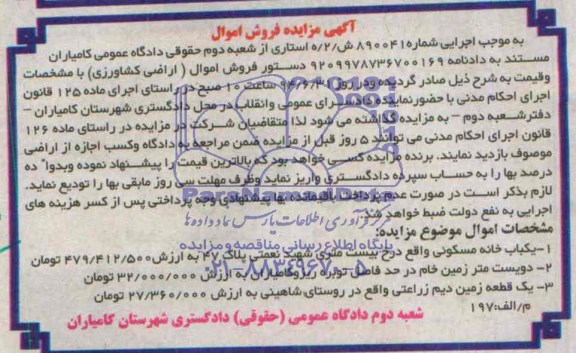 آگهی مزایده فروش اموال
به موجب اجرایی شماره ۸۹۰۰۴۱ ش/۵/۲ استاری از شعبه دوم حقوقی دادگاه عمومی کامیاران
مستند به دادنامه ۹۲۰۹۹۷۸۷۳۶۷۰۰۱۶۹ دستور فروش اموال ( اراضی کشاورزی) با مشخصات
وقیمت به شرح ذیل صادر گردیده ودر روز ساعت ۱۰ صبح در راستای اجرای ماده ۱۲۵ قانون
اجرای احکام مدنی با حضورنماینده دادسرای عمومی وانقلاب در محل دادگستری شهرستان کامیاران –
دفترشعبه دوم – به مزایده گذاشته می شود لذا متقاضیان شرکت در مزایده در راستای ماده ۱۲۶
قانون اجرای احکام مدنی می توانند ۵ روز قبل از مزایده ضمن مراجعه به دادگاه وکسب اجازه از اراضی
موصوف بازدید نمایند. برنده مزایده کسی خواهد بود که بالاترین قیمت را پیشنهاد نموده وبدوا" ده
درصد بها را به حساب سپرده دادگستری واریز نماید وظرف مهلت سی روز مابقی بها را تودیع نماید.
لازم بذکر است در صورت عدم پرداخت باقیمانده بها پیشنهادی وجه پرداختی پس از کسر هزینه های
اجرایی به نفع دولت ضبط خواهد شد.
مشخصات اموال موضوع مزایده:
۱-یکباب خانه مسکونی واقع درج بیست متری شهید نعمتی پلاک ۴۷ به ارزش ۴۷۹/۴۱۲/۵۰۰ تومان
۲- دویست متر زمین خام در حد فاصل توانره ریزوکامیاران به ارزش ۳۲/۰۰۰/۰۰۰ تومان
۳- یک قطعه زمین دیم زراعتی واقع در روستای شاهینی به ارزش ۲۷/۳۶۰/۰۰۰ تومان
م/الف:۱۹۷
شعبه دوم دادگاه عمومی (حقوقی) دادگستری شهرستان کامیاران
ParsNamadData
مرکز گردآوری اطلاعات پارس نماد داده ها
پایگاه اطلاع رسانی مناقصه و مزایده